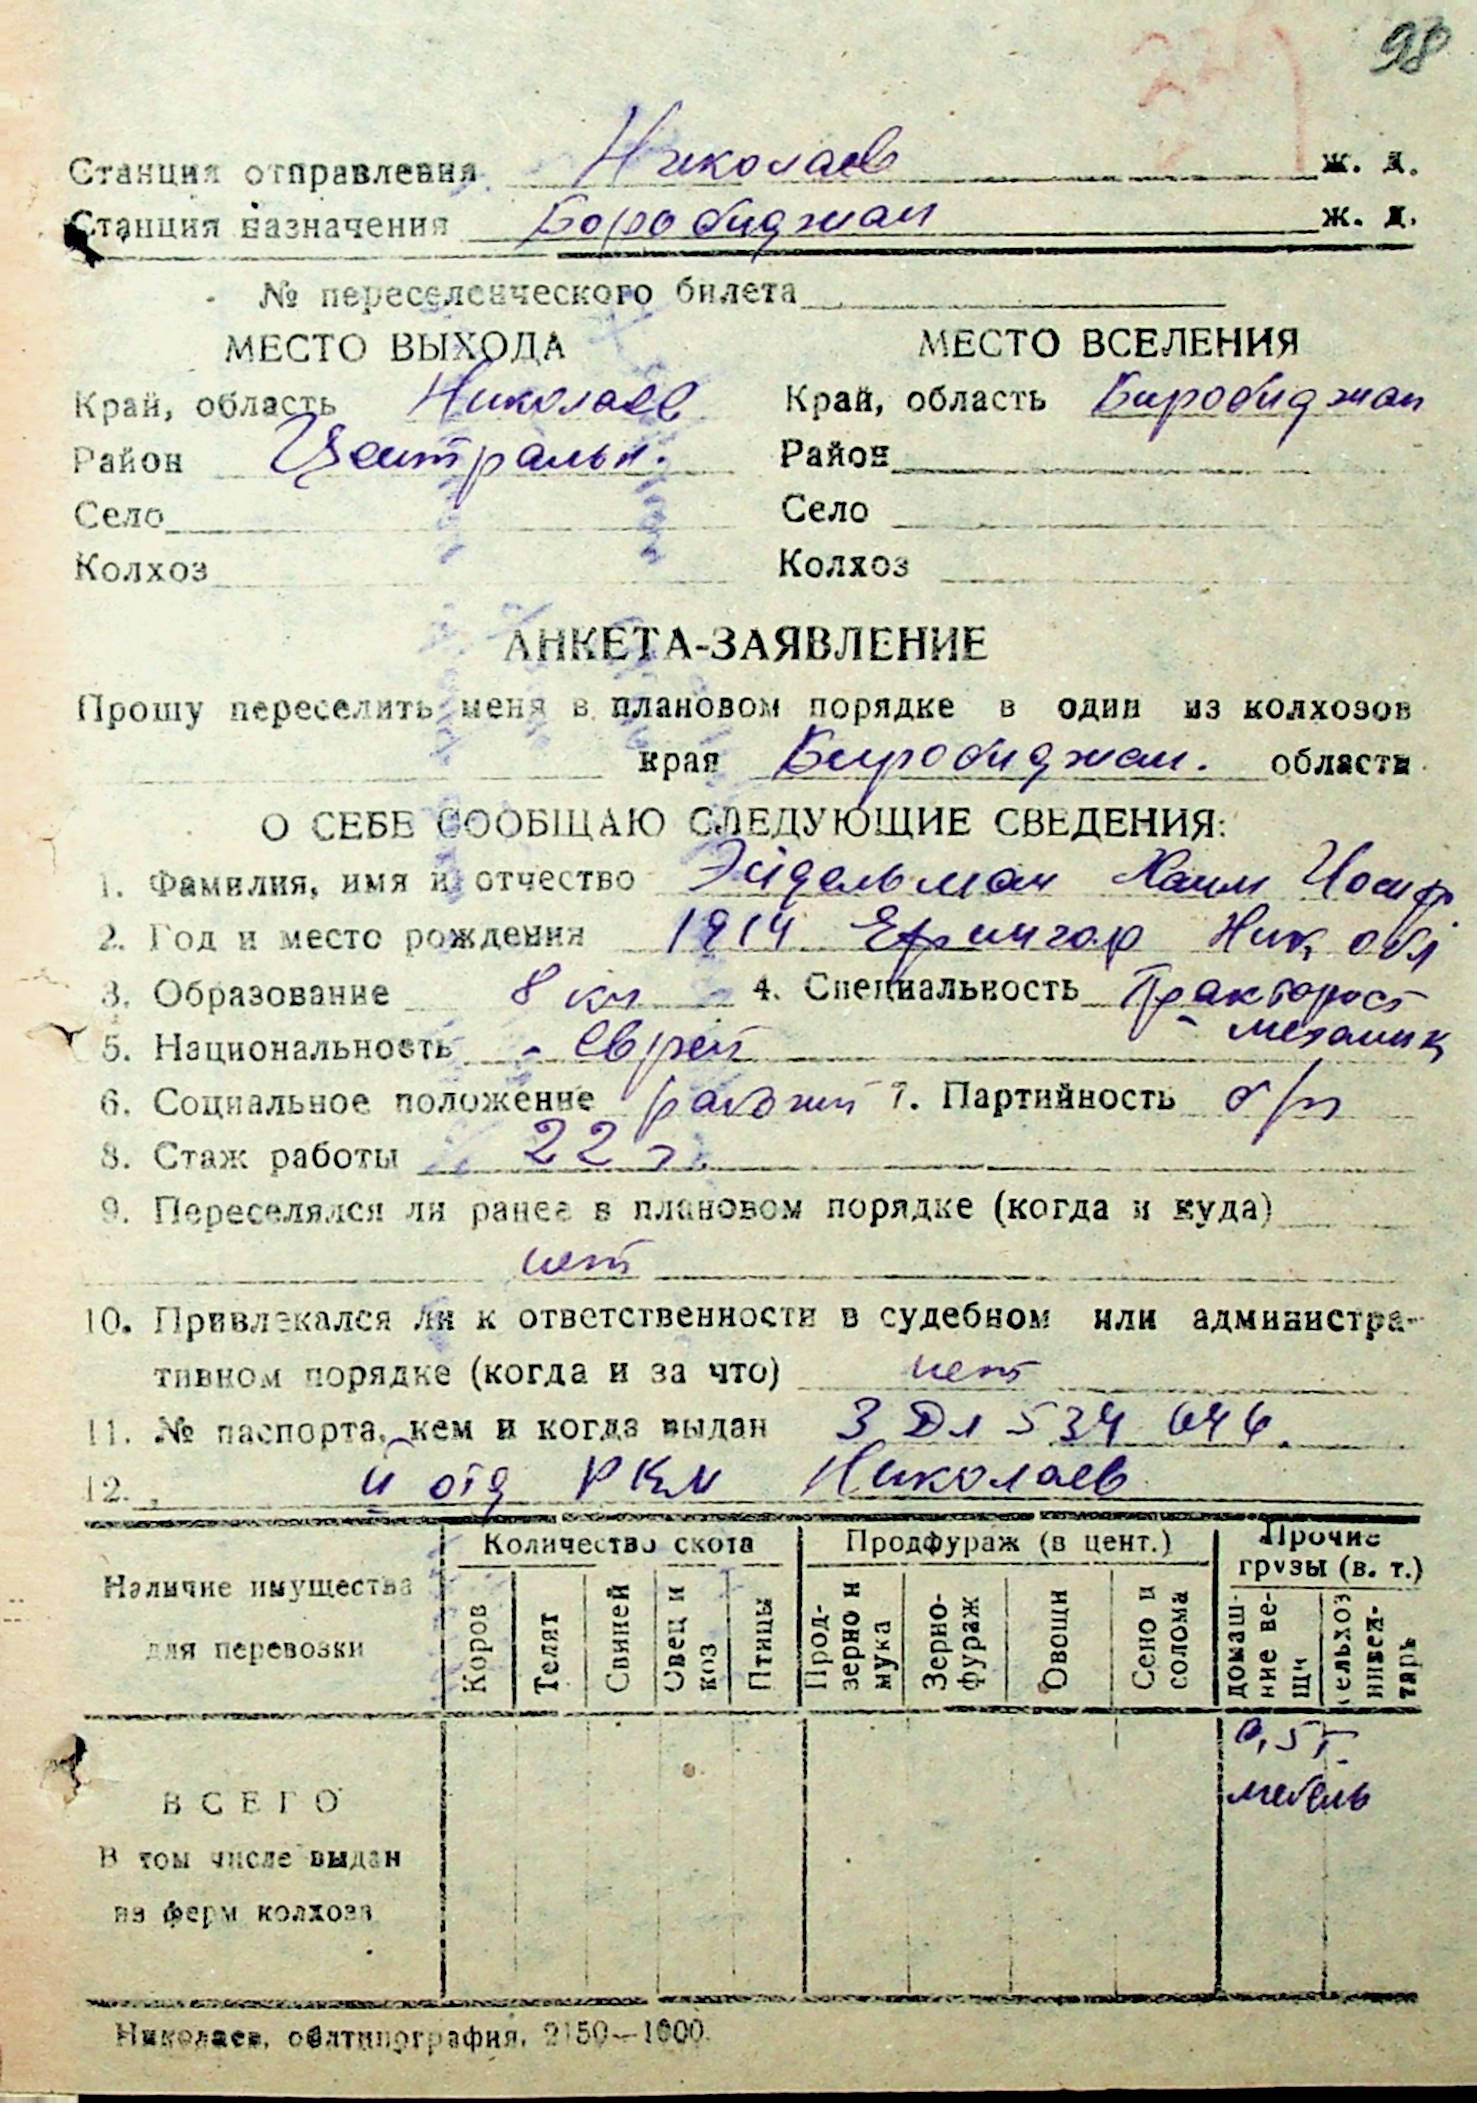 98
Станция отправления Николаев ж. д.
Станция назначения Боробиджан ж. д.
№ переселенческого билета
МЕСТО ВЫХОДА МЕСТО ВСЕЛЕНИЯ
Край, область Николаев Край, область Биробиджан
Район Центральн. Район
Село Село
Колхоз Колхоз
АНКЕТА-ЗАЯВЛЕНИЕ
Прошу переселить меня в плановом порядке в один из колхозов
края Биробиджан. области
О СЕБЕ СООБЩАЮ СЛЕДУЮЩИЕ СВЕДЕНИЯ:
1. Фамилия, имя и отчество Эйдельман Хаим Иосиф
2. Год и место рождения 1914 Ефингар Ник. обл
3. Образование 8 кл 4. Специальность Тракторост
- механик
5. Национальность - еврей
6. Социальное положение рабочий 7. Партийность б/п
8. Стаж работы 22 г.
9. Переселялся ли ранее в плановом порядке (когда и куда)
нет
10. Привлекался ли к ответственности в судебном или администра-
тивном порядке (когда и за что) нет
11. № паспорта, кем и когда выдан 3 Дл 534 646.
12. II отд РКМ Николаев
Наличие имущества для перевозки Количество скота Продфураж (в цент.) Прочие грузы (в. т.)
Коров Телят Свиней Овец и коз Птицы Прод-зерно и мука Зерно-фураж Овощи Сено и солома домаш-ние ве-щи сельхоз инвен-тарь
0,5 т.
ВСЕГО мебель
В том числе выдан
из ферм колхоза
Николаев, облтипография. 2150—1000.